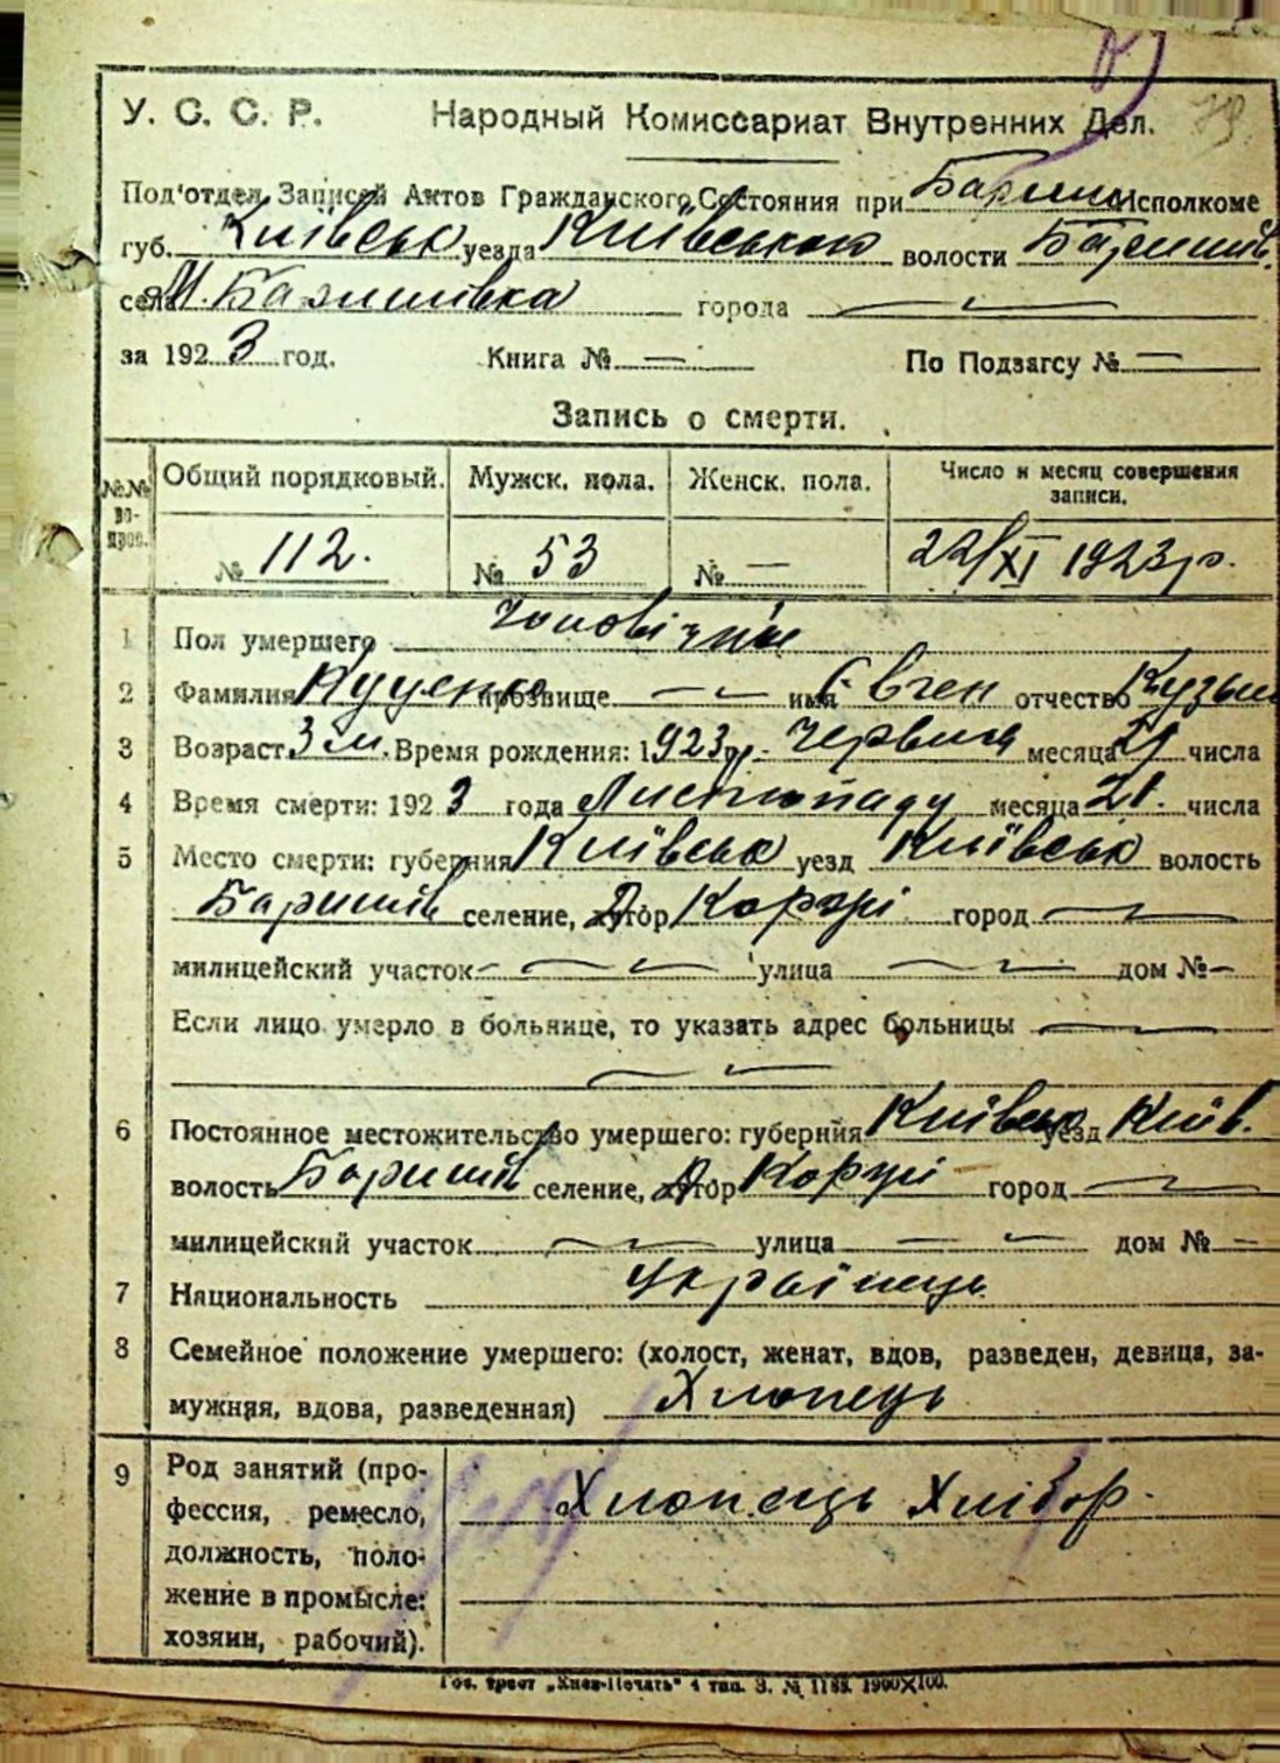 У. С. С. Р. Народный Комиссариат Внутренних Дел. 79.
Под'отдел Записей Актов Гражданского Состояния при Баришів Исполкоме
губ. Київськ уезда Київського волости Баришів.
села М. Баришівка города —
за 1923 год. Книга № — По Подзагсу № —
Запись о смерти.
№№ во-прос. Общий порядковый. Мужск. пола. Женск. пола. Число и месяц совершения записи.
№ 112. № 53 № — 22/XI 1923 р.
1 Пол умершего чоловічий
2 Фамилия Куценко прозвище — имя Євген отчество Кузьм
3 Возраст 3 м. Время рождения: 1923 р. Червня месяца 29 числа
4 Время смерти: 1923 года Листопаду месяца 21. числа
5 Место смерти: губерния Київськ уезд Київськ волость
Баришів селение, хутор Коржі город —
милицейский участок — улица — дом № —
Если лицо умерло в больнице, то указать адрес больницы —
—
6 Постоянное местожительство умершего: губерния Київськ уезд Київ.
волость Баришів селение, хутор Коржі город —
милицейский участок — улица — дом № —
7 Национальность Українець
8 Семейное положение умершего: (холост, женат, вдов, разведен, девица, за-
мужняя, вдова, разведенная) Хлопець
9 Род занятий (про-
фессия, ремесло, Хлопець Хлібор.
должность, поло-
жение в промысле:
хозяин, рабочий).
Гос. трест „Киев-Печать" 4 тип. З. № 1188. 1900×100.